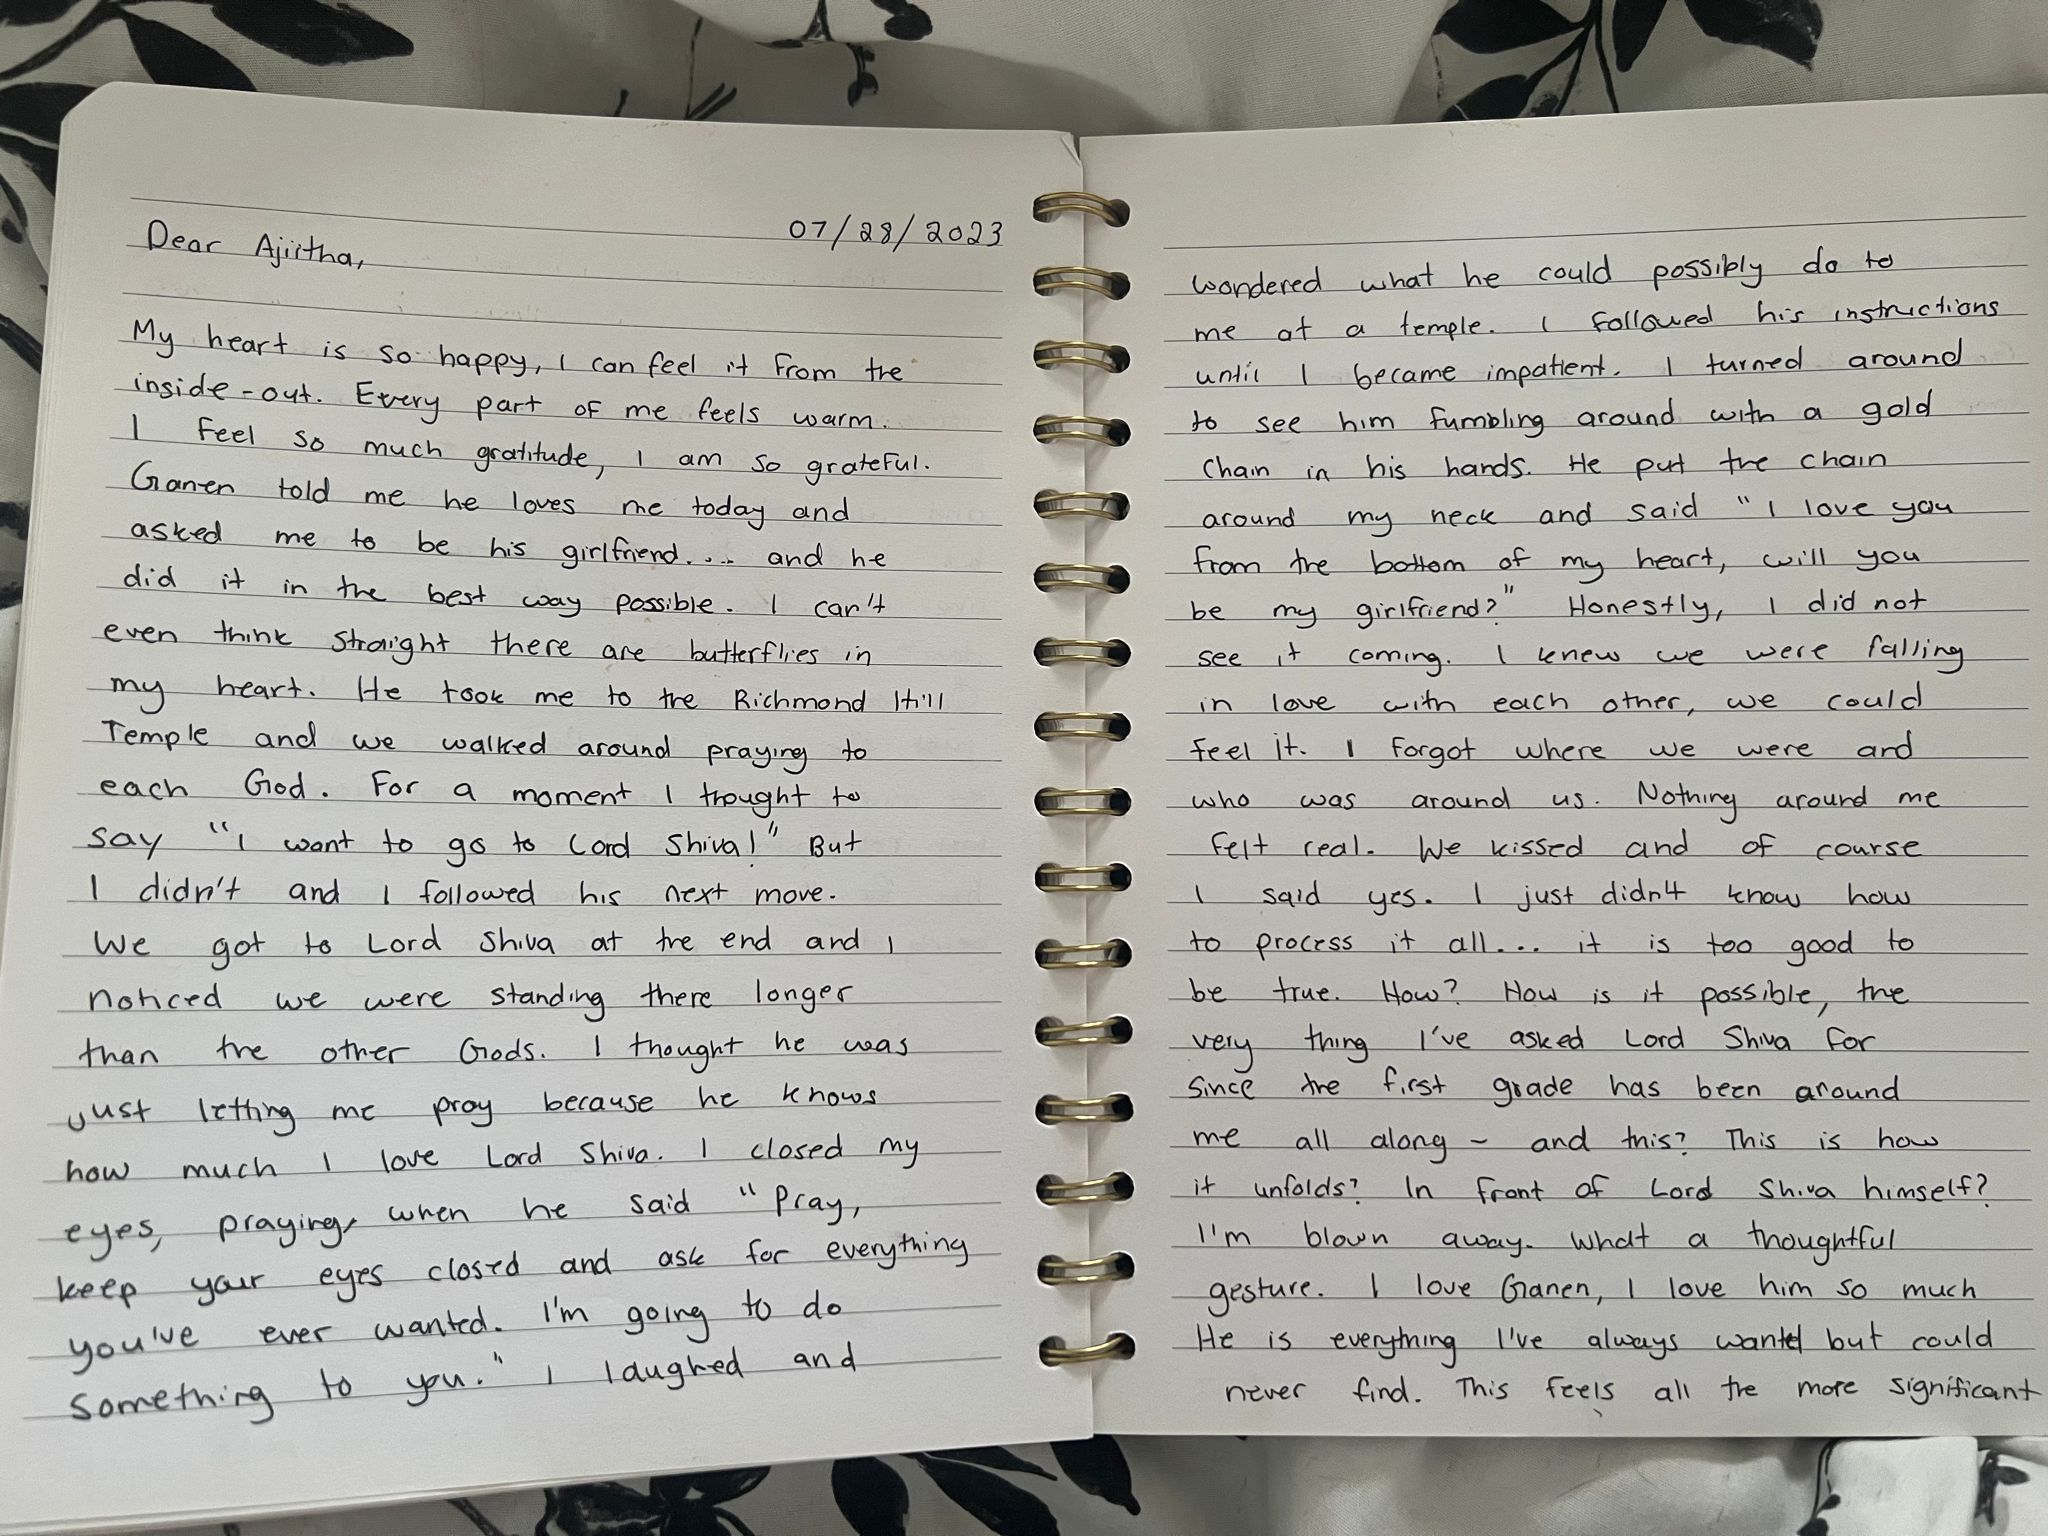 07/28/2023
Dear Ajirtha,
My heart is so happy, I can feel it from the
inside-out. Every part of me feels warm.
I feel so much gratitude, I am so grateful.
Ganen told me he loves me today and
asked me to be his girlfriend.... and he
did it in the best way possible. I can't
even think straight there are butterflies in
my heart. He took me to the Richmond Hill
Temple and we walked around praying to
each God. For a moment I thought to
say "I want to go to Lord Shiva!" But
I didn't and I followed his next move.
We got to Lord Shiva at the end and I
noticed we were standing there longer
than the other Gods. I thought he was
just letting me pray because he knows
how much I love Lord Shiva. I closed my
eyes, praying, when he said "Pray,
keep your eyes closed and ask for everything
you've ever wanted. I'm going to do
something to you." I laughed and
wondered what he could possibly do to
me at a temple. I followed his instructions
until I became impatient. I turned around
to see him fumbling around with a gold
chain in his hands. He put the chain
around my neck and said "I love you
from the bottom of my heart, will you
be my girlfriend?" Honestly, I did not
see it coming. I knew we were falling
in love with each other, we could
feel it. I forgot where we were and
who was around us. Nothing around me
felt real. We kissed and of course
I said yes. I just didn't know how
to process it all... it is too good to
be true. How? How is it possible, the
very thing I've asked Lord Shiva for
since the first grade has been around
me all along - and this? This is how
it unfolds? In front of Lord Shiva himself?
I'm blown away. What a thoughtful
gesture. I love Ganen, I love him so much
He is everything I've always wanted but could
never find. This feels all the more significant